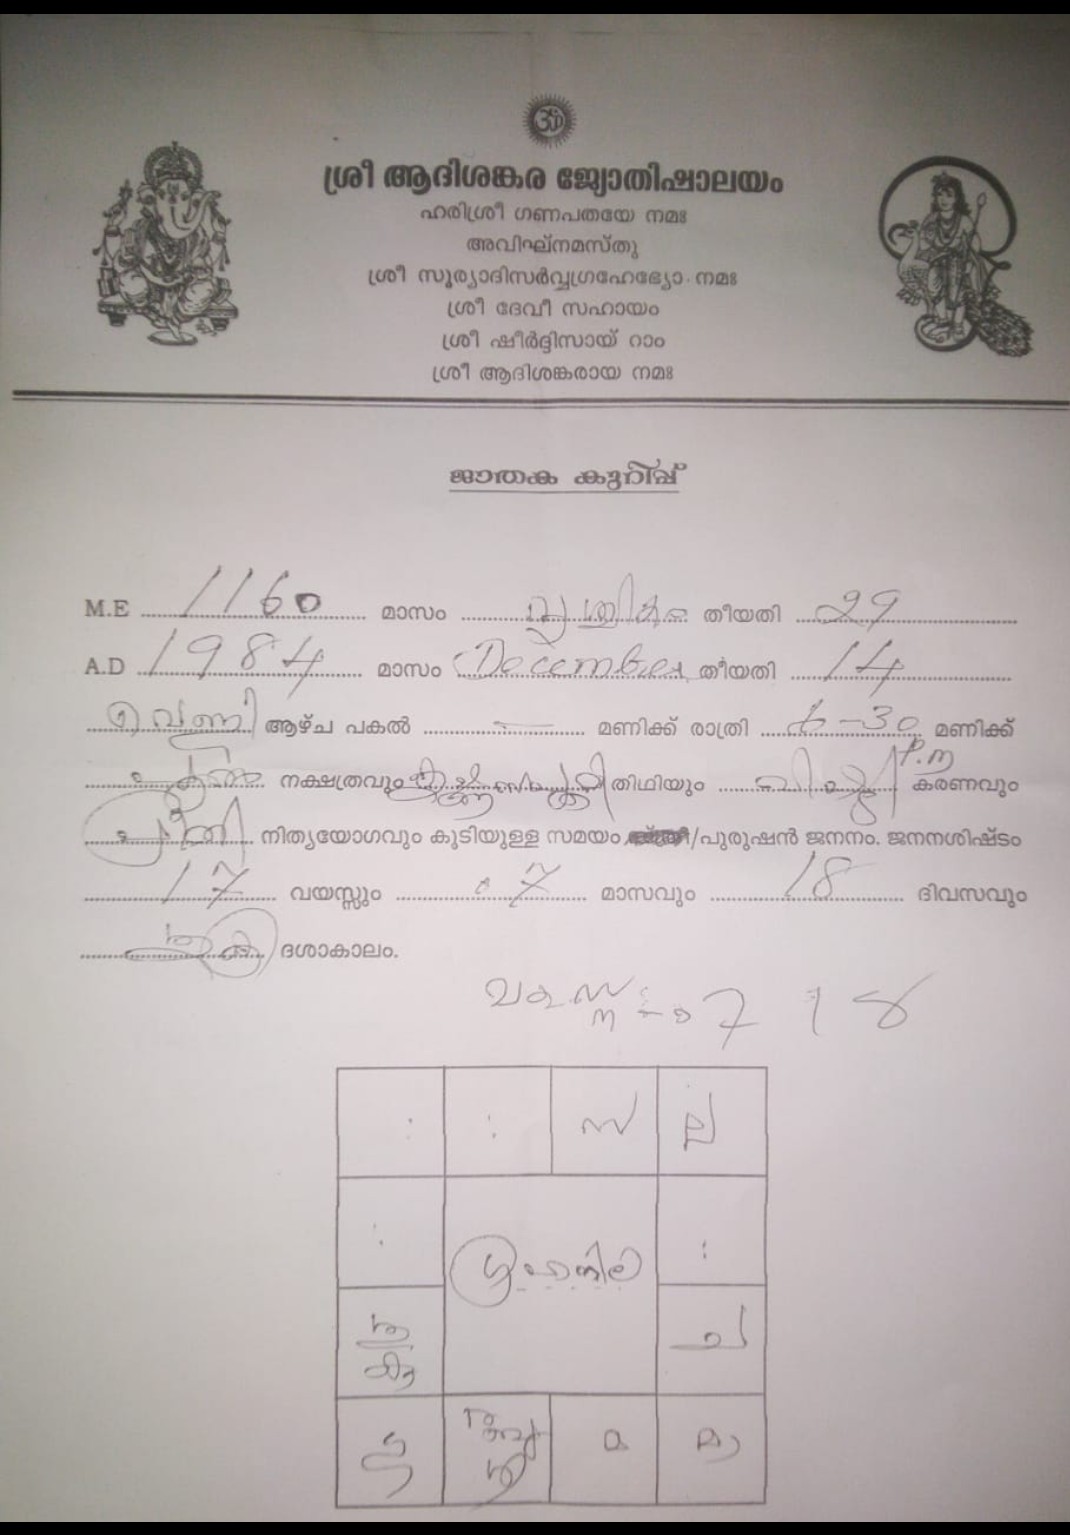 ഓം
ശ്രീ ആദിശങ്കര ജ്യോതിഷാലയം
ഹരിശ്രീ ഗണപതയേ നമഃ
അവിഘ്നമസ്തു
ശ്രീ സൂര്യാദിസർവ്വഗ്രഹേഭ്യോ നമഃ
ശ്രീ ദേവീ സഹായം
ശ്രീ ഷീർദ്ദിസായ് റാം
ശ്രീ ആദിശങ്കരായ നമഃ
ജാതക കുറിപ്പ്
M.E 1160 മാസം വൃശ്ചികം തീയതി 29
A.D 1984 മാസം December തീയതി 14
വെള്ളി ആഴ്ച പകൽ മണിക്ക് രാത്രി 6-30 മണിക്ക്
P.m
നക്ഷത്രവും തിഥിയും കരണവും
പ്രീതി നിത്യയോഗവും കൂടിയുള്ള സമയം /പുരുഷൻ ജനനം. ജനനശിഷ്ടം
17 വയസ്സും 7 മാസവും 18 ദിവസവും
ദശാകാലം.
7 18
സ ല
ഗ്രഹനില
ച
മ മാ